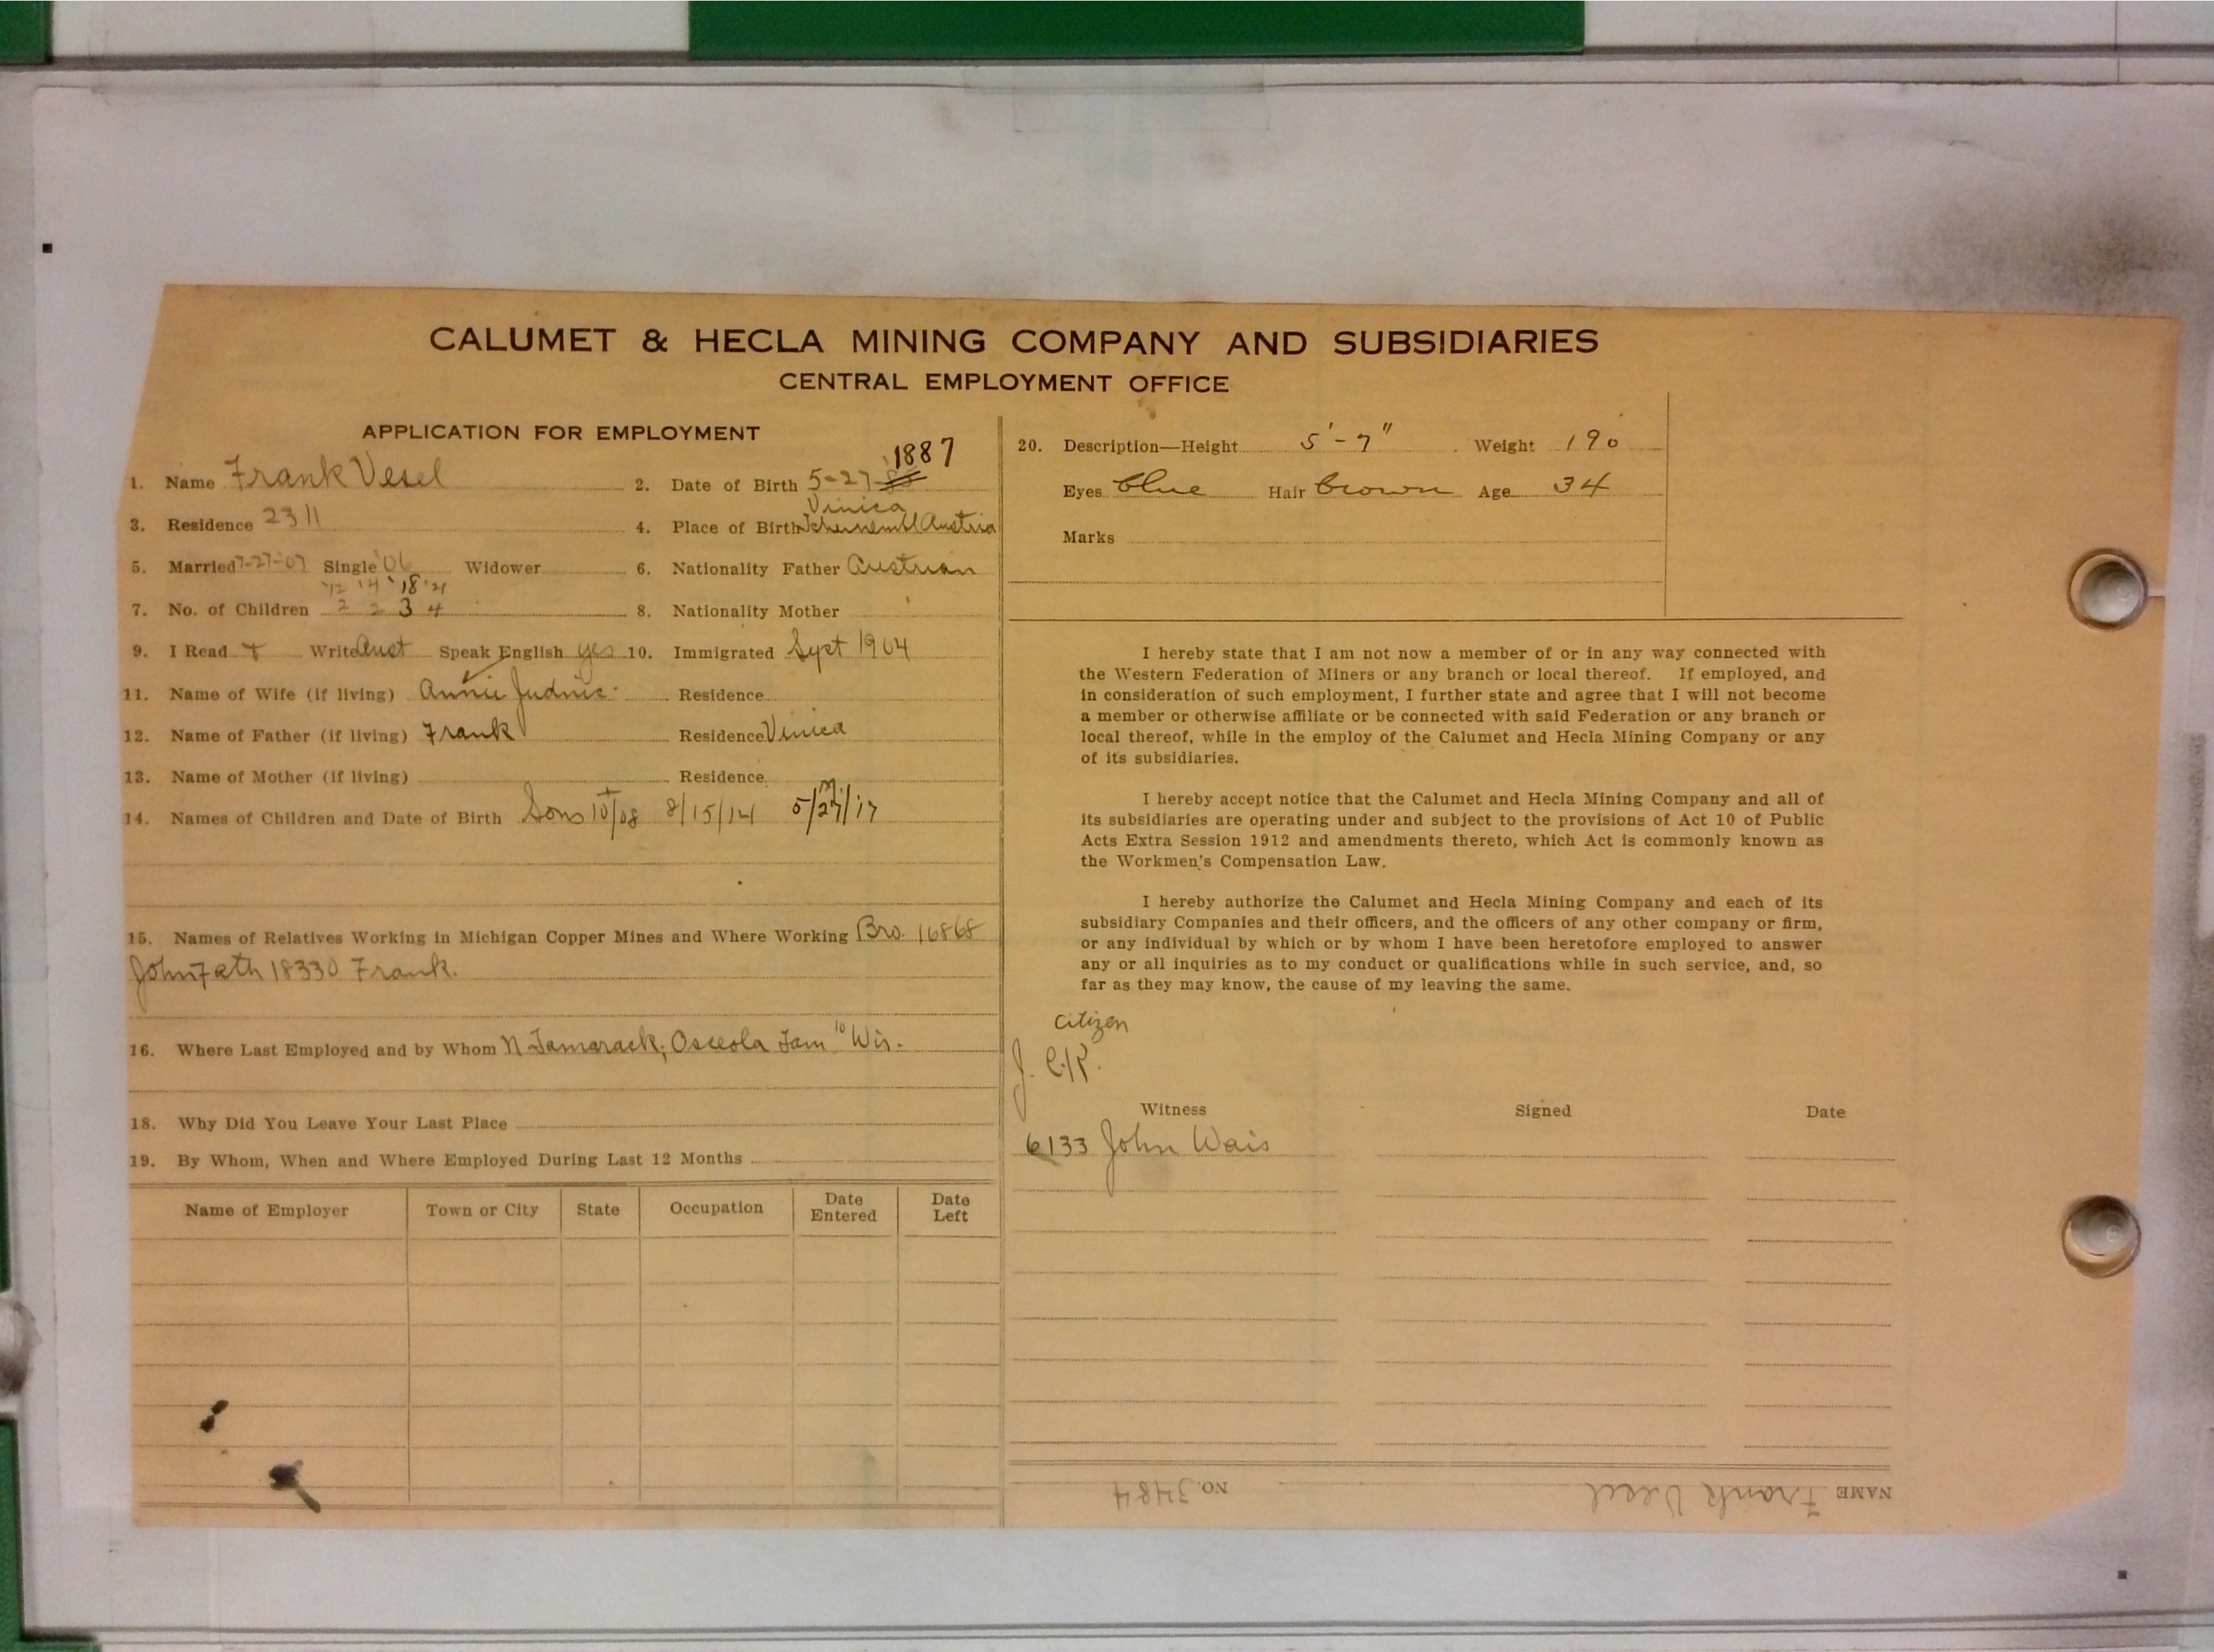 CALUMET & HECLA MINING COMPANY AND SUBSIDIARIES
CENTRAL EMPLOYMENT OFFICE
APPLICATION FOR EMPLOYMENT
1. Name Frank Vesel 2. Date of Birth 5-27- 1887
3. Residence 2311 4. Place of Birth Vinica Austria
5. Married 7-27-07 Single '06 Widower 6. Nationality Father Austrian
'12 '14 '18 '21
7. No. of Children 2 2 3 4 8. Nationality Mother
9. I Read + Write Aust Speak English yes 10. Immigrated Sept 1904
11. Name of Wife (if living) Annie Judnic Residence
12. Name of Father (if living) Frank Residence Vinica
13. Name of Mother (if living) Residence
14. Names of Children and Date of Birth Sons 10/08 8/15/14 5/27/17
15. Names of Relatives Working in Michigan Copper Mines and Where Working Bro. 16868
John Fath 18330 Frank.
16. Where Last Employed and by Whom N Tamarack; Osceola Tam '10 Wis.
18. Why Did You Leave Your Last Place
19. By Whom, When and Where Employed During Last 12 Months
Name of Employer Town or City State Occupation Date Entered Date Left
20. Description—Height 5'-7" Weight 190
Eyes blue Hair brown Age 34
Marks
I hereby state that I am not now a member of or in any way connected with
the Western Federation of Miners or any branch or local thereof. If employed, and
in consideration of such employment, I further state and agree that I will not become
a member or otherwise affiliate or be connected with said Federation or any branch or
local thereof, while in the employ of the Calumet and Hecla Mining Company or any
of its subsidiaries.
I hereby accept notice that the Calumet and Hecla Mining Company and all of
its subsidiaries are operating under and subject to the provisions of Act 10 of Public
Acts Extra Session 1912 and amendments thereto, which Act is commonly known as
the Workmen's Compensation Law.
I hereby authorize the Calumet and Hecla Mining Company and each of its
subsidiary Companies and their officers, and the officers of any other company or firm,
or any individual by which or by whom I have been heretofore employed to answer
any or all inquiries as to my conduct or qualifications while in such service, and, so
far as they may know, the cause of my leaving the same.
Citizen
Witness Signed Date
6133 John Wais
NAME Frank Vesel NO. 3484